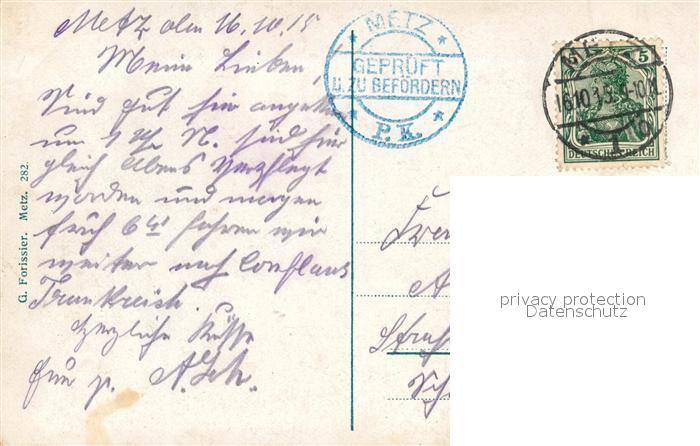 Metz den 16.10.15
Meine Lieben,
Sind gut hier angek.
um 1 Uhr N. sind hier
gleich Abens verpflegt
worden und morgen
früh 6 Uhr fahren wir
weiter nach Conflans
Frankreich.
herzliche Küsse
A. Sch.
G. Forissier. Metz. 282.
METZ
GEPRÜFT
U. ZU BEFÖRDERN
P.K.
5
16.10.15. 9-10
DEUTSCHES REICH
privacy protection
Datenschutz